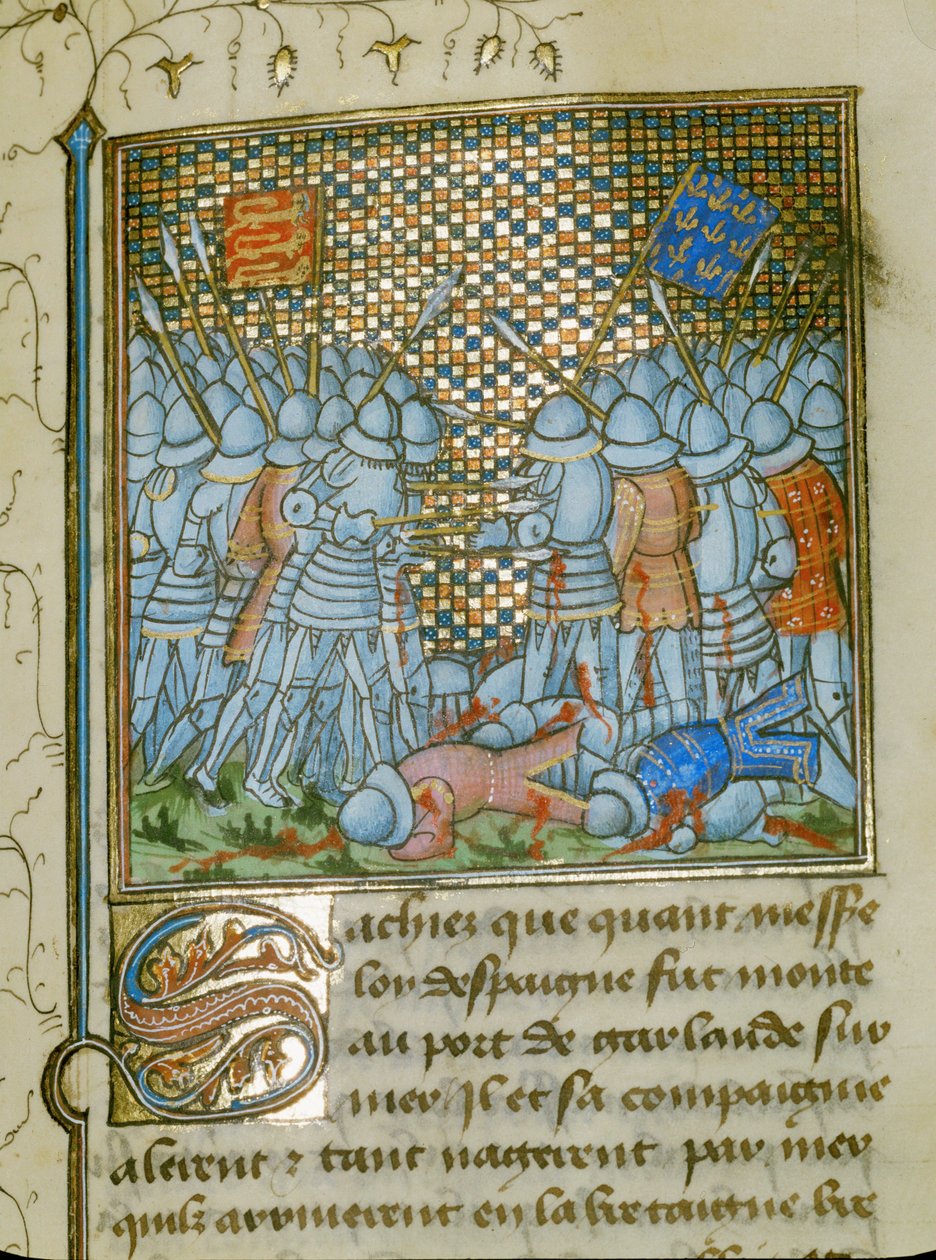 Sachiez que quant messe
loys despaigne fut monte
au port de garlande sur
mer Il et sa compaignie
alerent & tant nagerent par mer
quilz arriuerent en la bretaigne bre